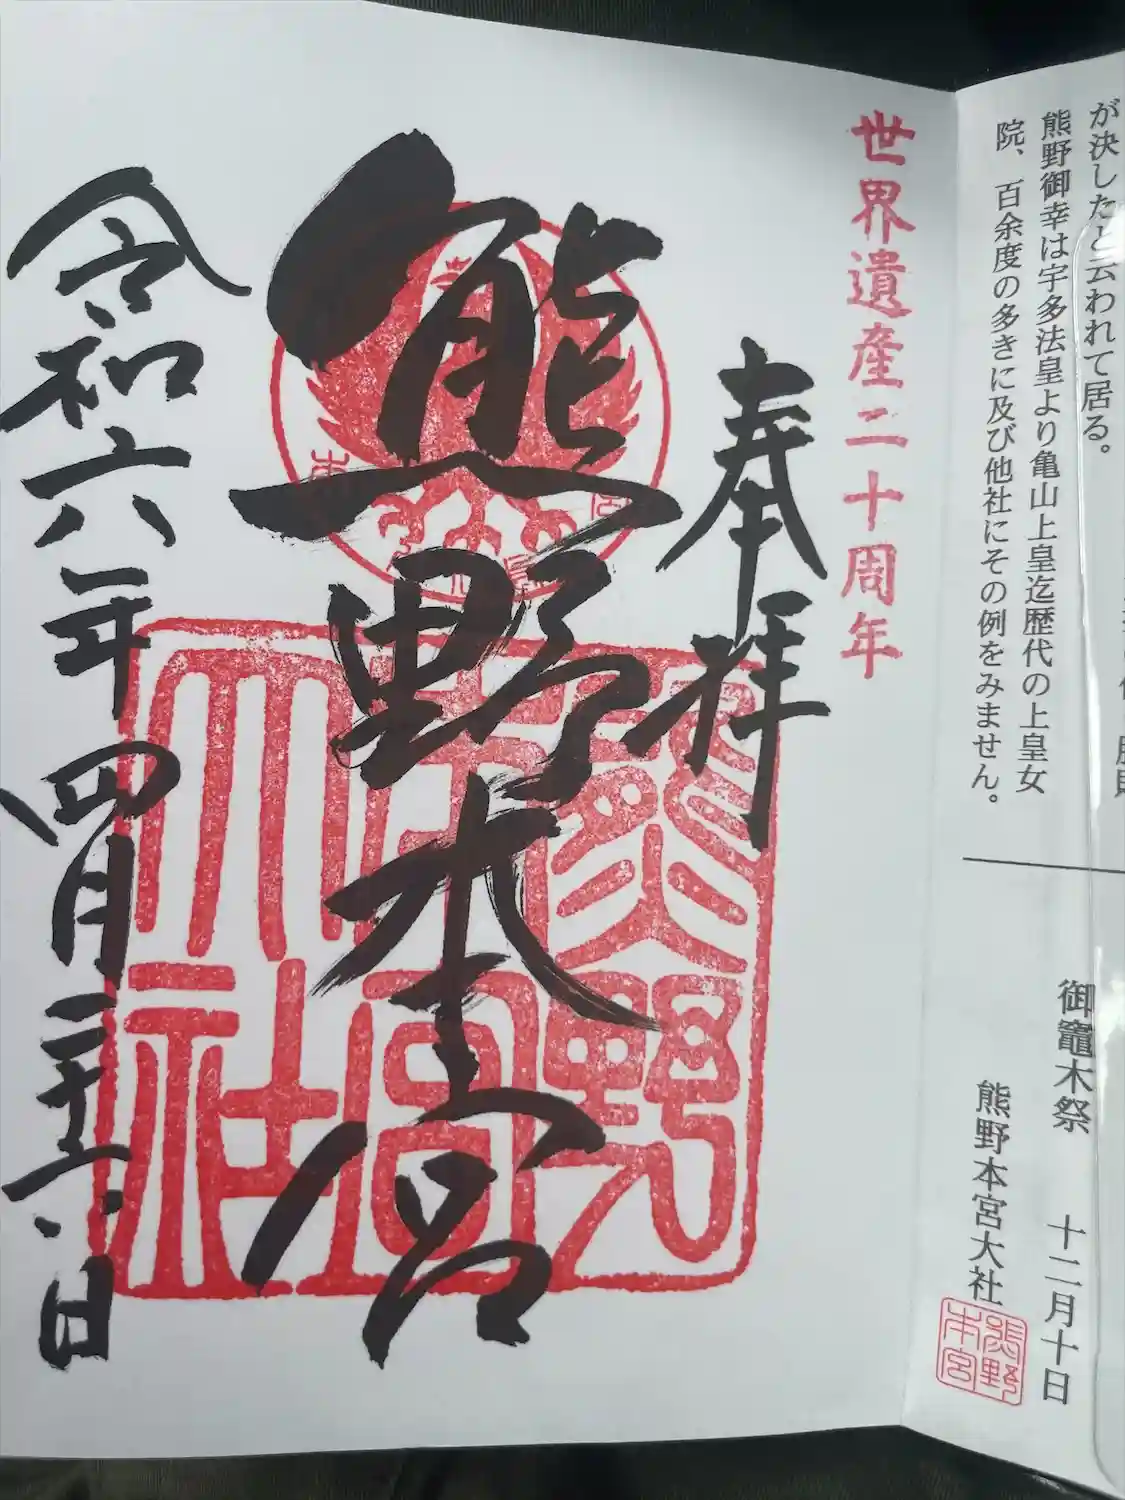 が決したと云われて居る。
熊野御幸は宇多法皇より亀山上皇迄歴代の上皇女
院、百余度の多きに及び他社にその例をみません。
御竈木祭　十二月十日
熊野本宮大社
熊野
本宮
世界遺産二十周年
奉拝
熊野本宮
熊野
本宮
大社
令和六年四月二十六日